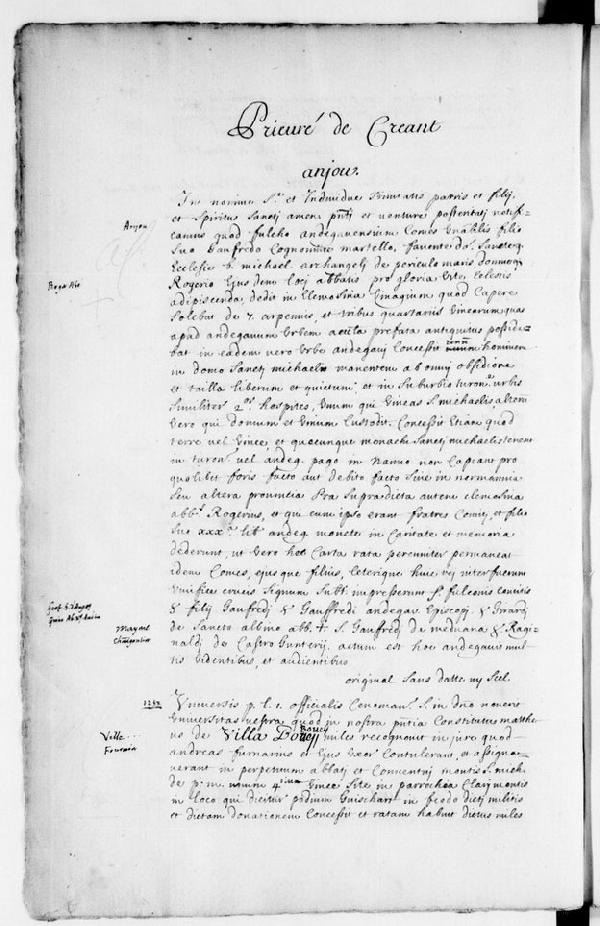 Prieuré de Creant
anjou.
In nomine S.te et Individue trinitatis patris et filij
et Spiritus Sancti amen pnti et venture posteritati notifi-
Anjou
camus quod fulcho andegavensium Comes Unâblis filio
suo Gaufredo Cognomine martello, favente do. Sancteq
Ecclesie b. michael archangeli de periculo maris donmoq
Roger Abe
Rogerio Ejusdem locj abbatis pro gloria Vite Celestis
adipiscenda dedit in Elemosina Vinagium quod Capere
Solebat de 7. arpennis, et tribus quartariis Vinearum quas
apud andegavum Urbem aecclia prefata antiquitus posside-
bat in eadem vero Urbe andegavj Concessit unum hominem
in domo Sanctj michaelis manentem ab omnj obsidione
et tailla liberum et quietum, et in Suburbio turon. urbis
Similiter 2.os hospites, Unum qui Vineas S. michaelis, alterum
Vero qui domum et Vinum Custodit. Concessit Etiam quod
terre vel Vinee, et quecunque monachi Sanctj michaelis tenent
in turon. vel andeg. pago in nanno non Capiant pro
quolibet foris facto aut debito facto Sive in normannia
Seu altera provincia Pra Supradicta autem elemosina
abb.s Rogerus, et qui cum ipso erant fratres Comitj, et filio
Suo xxx.ta lib andeg monete in Caritate et memoria
dederunt, ut Vero hec Carta rata perenniter permaneat
idem Comes, ejusque filius, Ceterique huic rej interfuerunt
Vnifice crucis Signum Subt. impresserunt S. fulconis comitis
& filij Gaufredj & Gauffredi andegav Episcopj. & Girardj
de Sancto albino abb. + S. Gauffredj de meduana & Ragi-
Mayenne
Charpentier
naldj de Castro Gunterij. actum est hoc andegavis mul-
tis Videntibus, et audientibus
original Sans datte ny Scel.
1262
Universis p. l. i. officialis Cenoman. S. in dno noverit
Universitas vestra quod in nostra pntia Constitutus matthe
Ville...
Fourmin
us de Villa Dorey miles recognovit in jure quod
andreas furnarius et Ejus Uxor Contulerant, et assigna-
verant in perpetuum abbatj et Conventuj montis S. mich.
de p. m. unum 4.rium Vinee Site in parrochia Clarj montis
in loco qui dicitur podium Guischart in feodo dictj militis
et dictam donationem Concessit et ratam habuit dictus miles